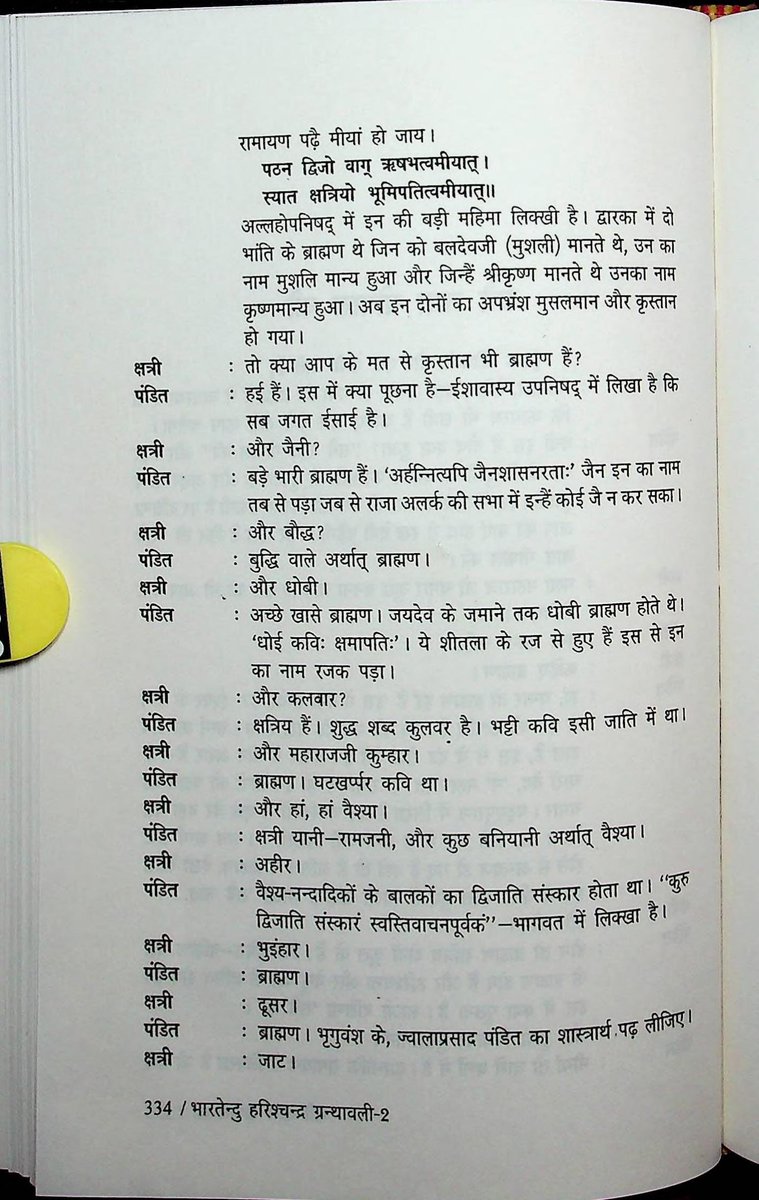 रामायण पढ़ै मीयां हो जाय।
पठन द्विजो वाग् ऋषभत्वमीयात्।
स्यात क्षत्रियो भूमिपतित्वमीयात्॥
अल्लहोपनिषद् में इन की बड़ी महिमा लिक्खी है। द्वारका में दो
भांति के ब्राह्मण थे जिन को बलदेवजी (मुशली) मानते थे, उन का
नाम मुशलि मान्य हुआ और जिन्हैं श्रीकृष्ण मानते थे उनका नाम
कृष्णमान्य हुआ। अब इन दोनों का अपभ्रंश मुसलमान और कृस्तान
हो गया।
क्षत्री : तो क्या आप के मत से कृस्तान भी ब्राह्मण हैं?
पंडित : हई हैं। इस में क्या पूछना है—ईशावास्य उपनिषद् में लिखा है कि
सब जगत ईसाई है।
क्षत्री : और जैनी?
पंडित : बड़े भारी ब्राह्मण हैं। ‘अर्हन्नित्यपि जैनशासनरताः’ जैन इन का नाम
तब से पड़ा जब से राजा अलर्क की सभा में इन्हैं कोई जै न कर सका।
क्षत्री : और बौद्ध?
पंडित : बुद्धि वाले अर्थात् ब्राह्मण।
क्षत्री : और धोबी।
पंडित : अच्छे खासे ब्राह्मण। जयदेव के जमाने तक धोबी ब्राह्मण होते थे।
‘धोई कविः क्षमापतिः’। ये शीतला के रज से हुए हैं इस से इन
का नाम रजक पड़ा।
क्षत्री : और कलवार?
पंडित : क्षत्रिय हैं। शुद्ध शब्द कुलवर है। भट्टी कवि इसी जाति में था।
क्षत्री : और महाराजजी कुम्हार।
पंडित : ब्राह्मण। घटखर्प्पर कवि था।
क्षत्री : और हां, हां वैश्या।
पंडित : क्षत्री यानी—रामजनी, और कुछ बनियानी अर्थात् वैश्या।
क्षत्री : अहीर।
पंडित : वैश्य-नन्दादिकों के बालकों का द्विजाति संस्कार होता था। “कुरु
द्विजाति संस्कारं स्वस्तिवाचनपूर्वकं”—भागवत में लिक्खा है।
क्षत्री : भुइंहार।
पंडित : ब्राह्मण।
क्षत्री : ढूसर।
पंडित : ब्राह्मण। भृगुवंश के, ज्वालाप्रसाद पंडित का शास्त्रार्थ पढ़ लीजिए।
क्षत्री : जाट।
334 / भारतेन्दु हरिश्चन्द्र ग्रन्थावली-2